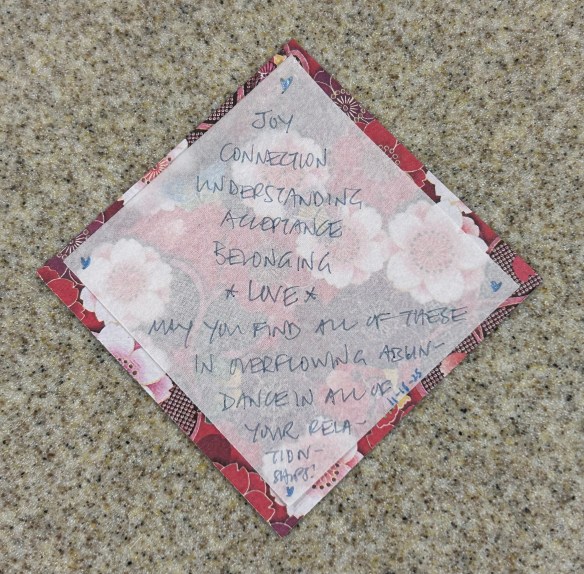 JOY
CONNECTION
UNDERSTANDING
ACCEPTANCE
BELONGING
* LOVE *
MAY YOU FIND ALL OF THESE
IN OVERFLOWING ABUN-
DANCE IN ALL OF
YOUR RELA-
TION-
SHIPS!
11-11-25